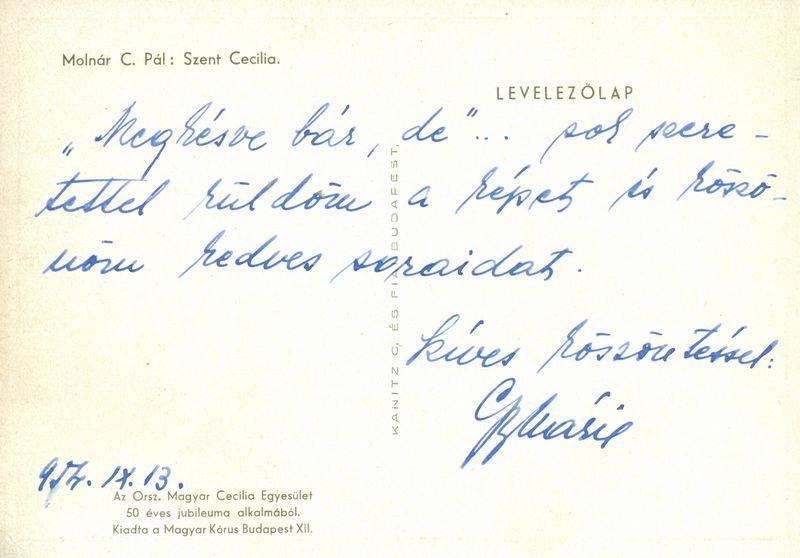 Molnár C. Pál: Szent Cecilia.
LEVELEZŐLAP
„Megkésve bár, de"... sok szere-
tettel küldöm a képet, és köszö-
nöm kedves soraidat.
Szíves köszöntéssel:
KANITZ C. ÉS FIAI BUDAPEST.
IX. 13.
Az Orsz. Magyar Cecilia Egyesület
50 éves jubileuma alkalmából.
Kiadta a Magyar Kórus Budapest XII.